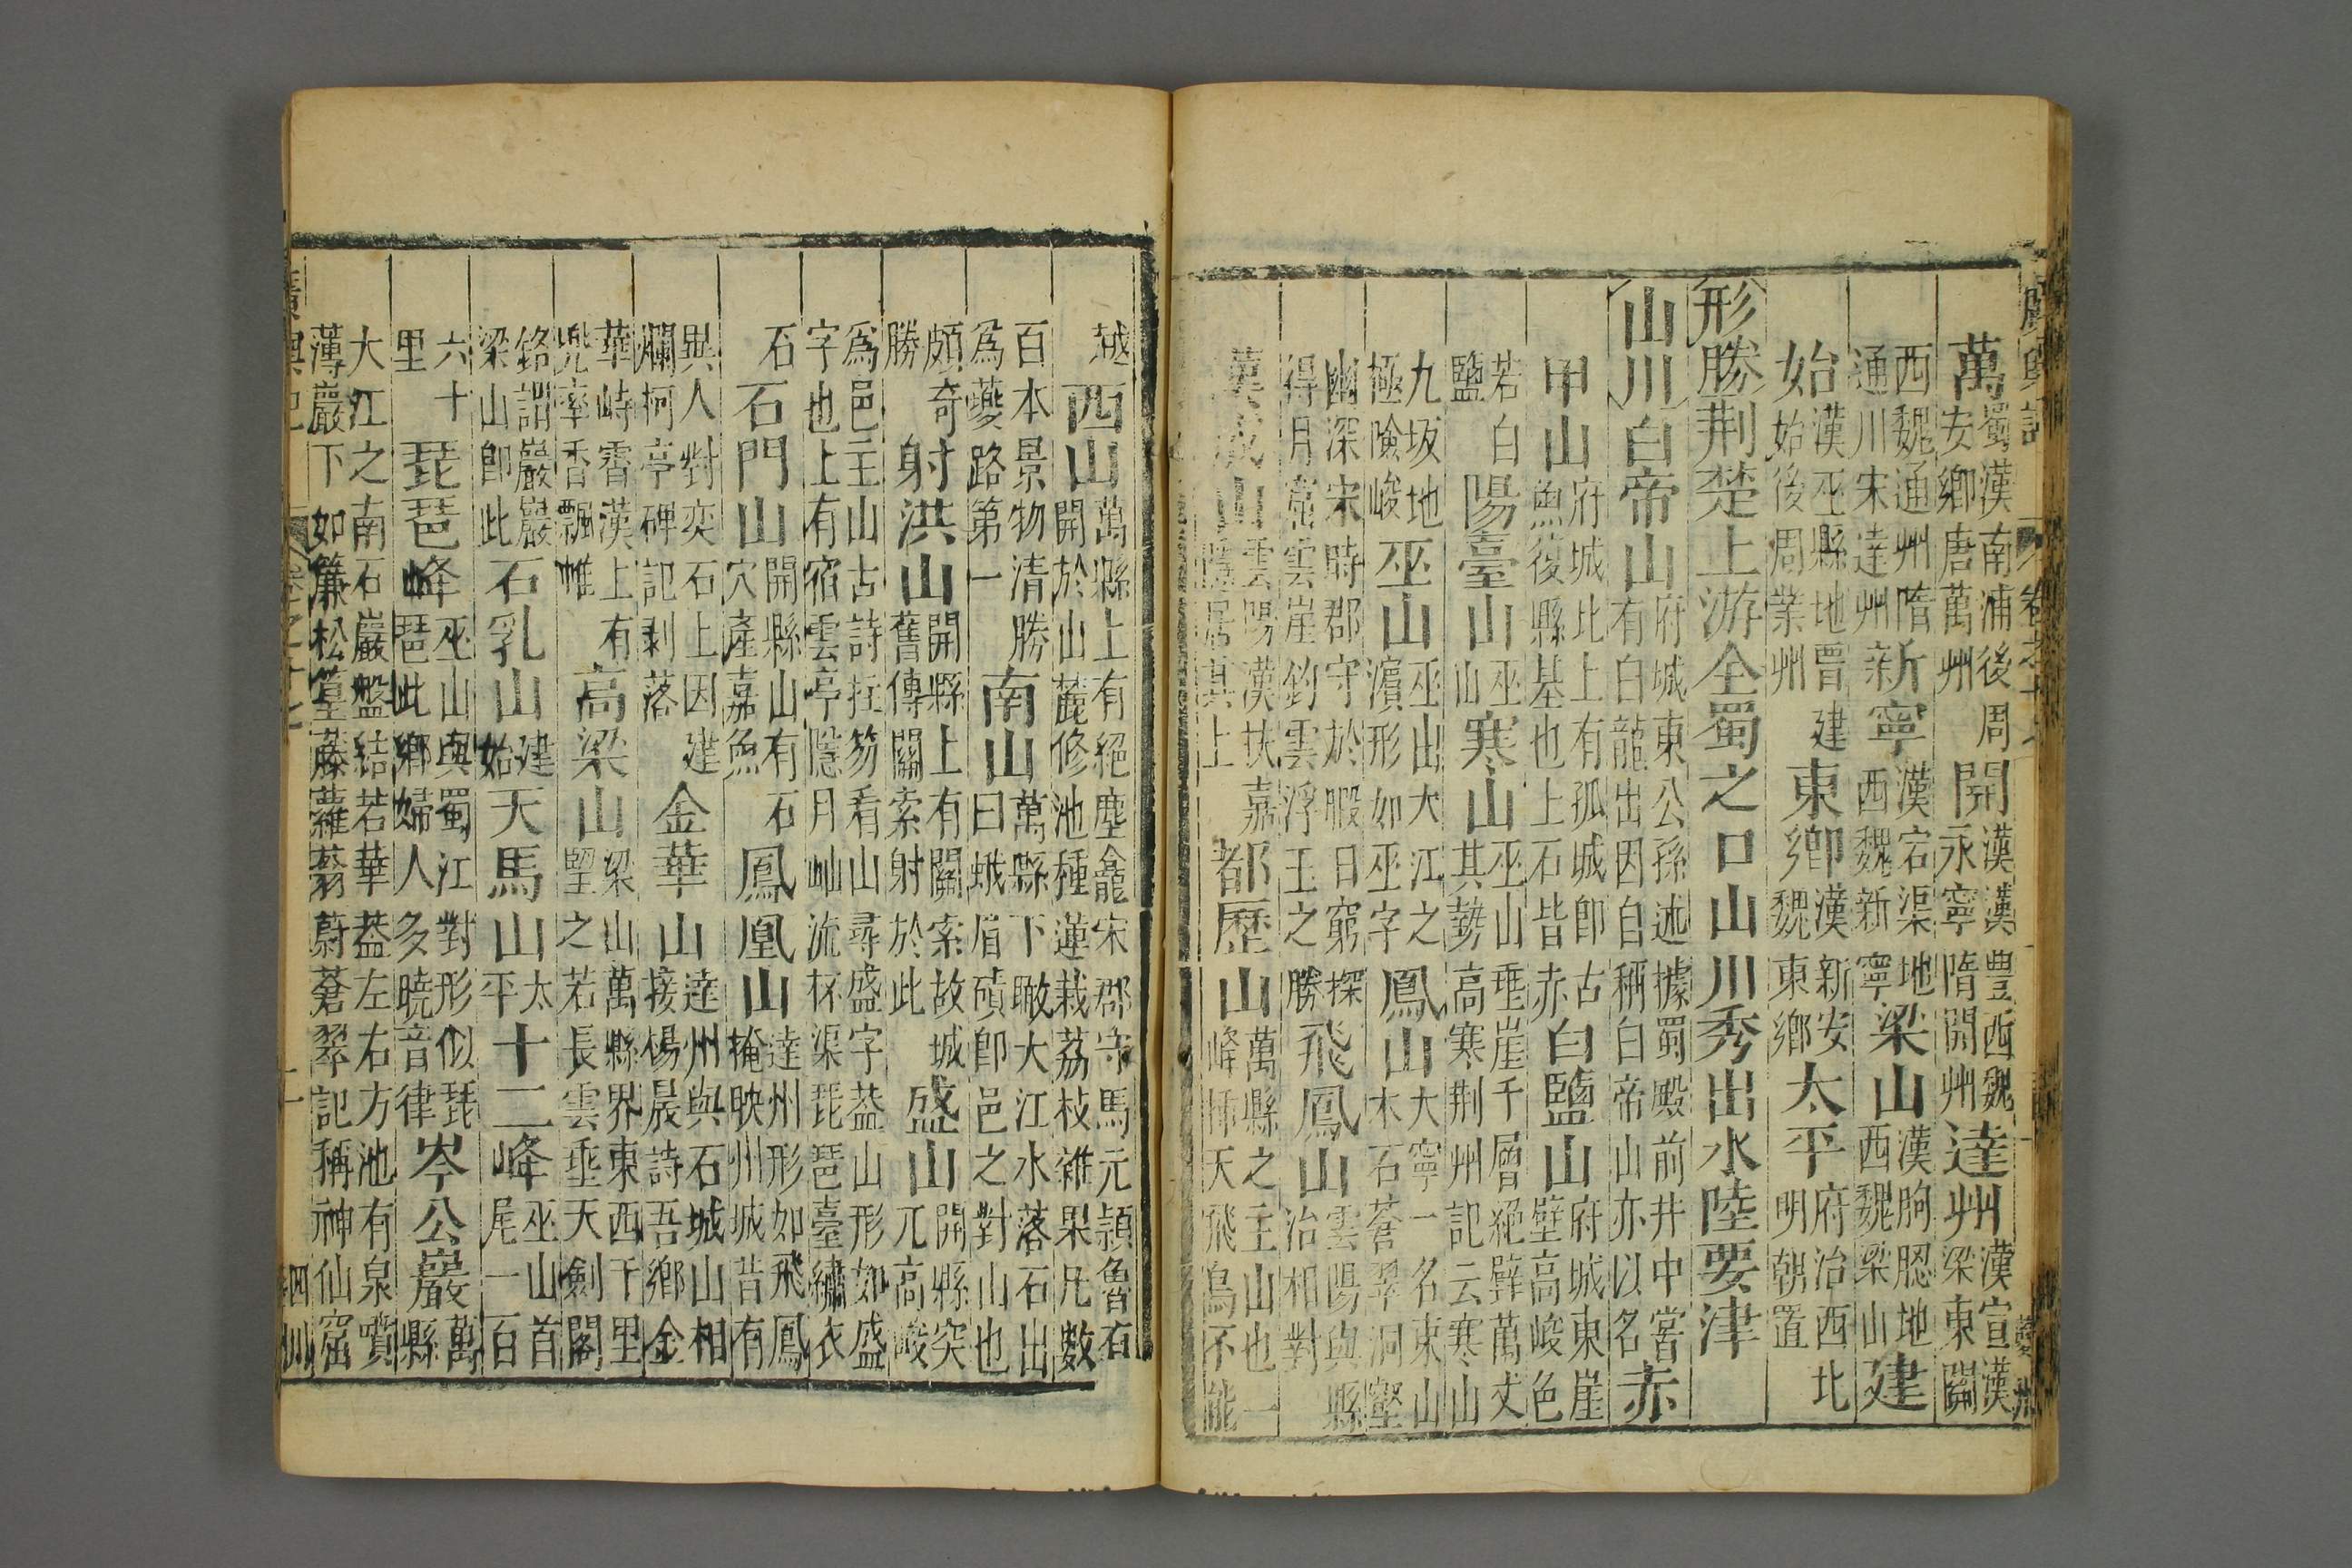 萬蜀漢南浦後周安鄉唐萬州開漢漢豊西魏永寧隋開州達州漢宣漢梁東關
西魏通州隋通川宋達州新寧漢宕渠地西魏新寧梁山漢朐䏰地西魏梁山建
始漢巫縣地晋建始後周業州東鄉漢新安魏東鄉太平府治西北明朝置
形勝荆楚上游全蜀之口山川秀出水陸要津
山川白帝山府城東公孫述據蜀殿前井中嘗有白龍出因自稱白帝山亦以名赤
甲山府城北上有孤城即古魚復縣基也上石皆赤白鹽山府城東崖壁高峻色
若白鹽陽臺山巫山寒山巫山垂崖千層絕壁萬丈其勢高寒荆州記云寒山
九坂地極險峻巫山巫山出大江之濵形如巫字鳳山大寧一名東山木石蒼翠洞壑
幽深宋時郡守於暇日窮探得月窟雲崖釣雲浮玉之勝飛鳳山雲陽與縣治相對
漢城山雲陽漢扶嘉隱居其上都歷山萬縣之主山也一峰揷天飛鳥不能
越西山萬縣上有絕塵龕宋郡守馬元頴魯有開於山麓修池種蓮栽荔枝雜果凡數
百本景物清勝爲夔路第一南山萬縣下瞰大江水落石出曰蛾眉磧卽邑之對山也
頗奇勝射洪山開縣上有關索故城舊傳關索射於此盛山開縣突兀高峻
爲邑主山古詩拄笏看山尋盛字葢山形如盛字也上有宿雲亭隱月岫流杯渠琵琶臺繡衣
石石門山開縣山有石穴產嘉魚鳳凰山達州形如飛鳳掩映州城昔有
異人對奕石上因建爛柯亭碑記剥落金華山達州與石城山相接楊晟詩吾鄉金
華峙霄漢上有兜率香飄帷高梁山梁山萬縣界東西千里望之若長雲垂天劍閣
銘謂巖巖梁山卽此石乳山建始天馬山太平十二峰巫山首尾一百
六十里琵琶峰巫山與蜀江對形似琵琶此鄉婦人多曉音律岑公巖萬縣
大江之南石巖盤結若華葢左右方池有泉噴薄巖下如簾松篁藤蘿蓊蔚蒼翠記稱神仙窟